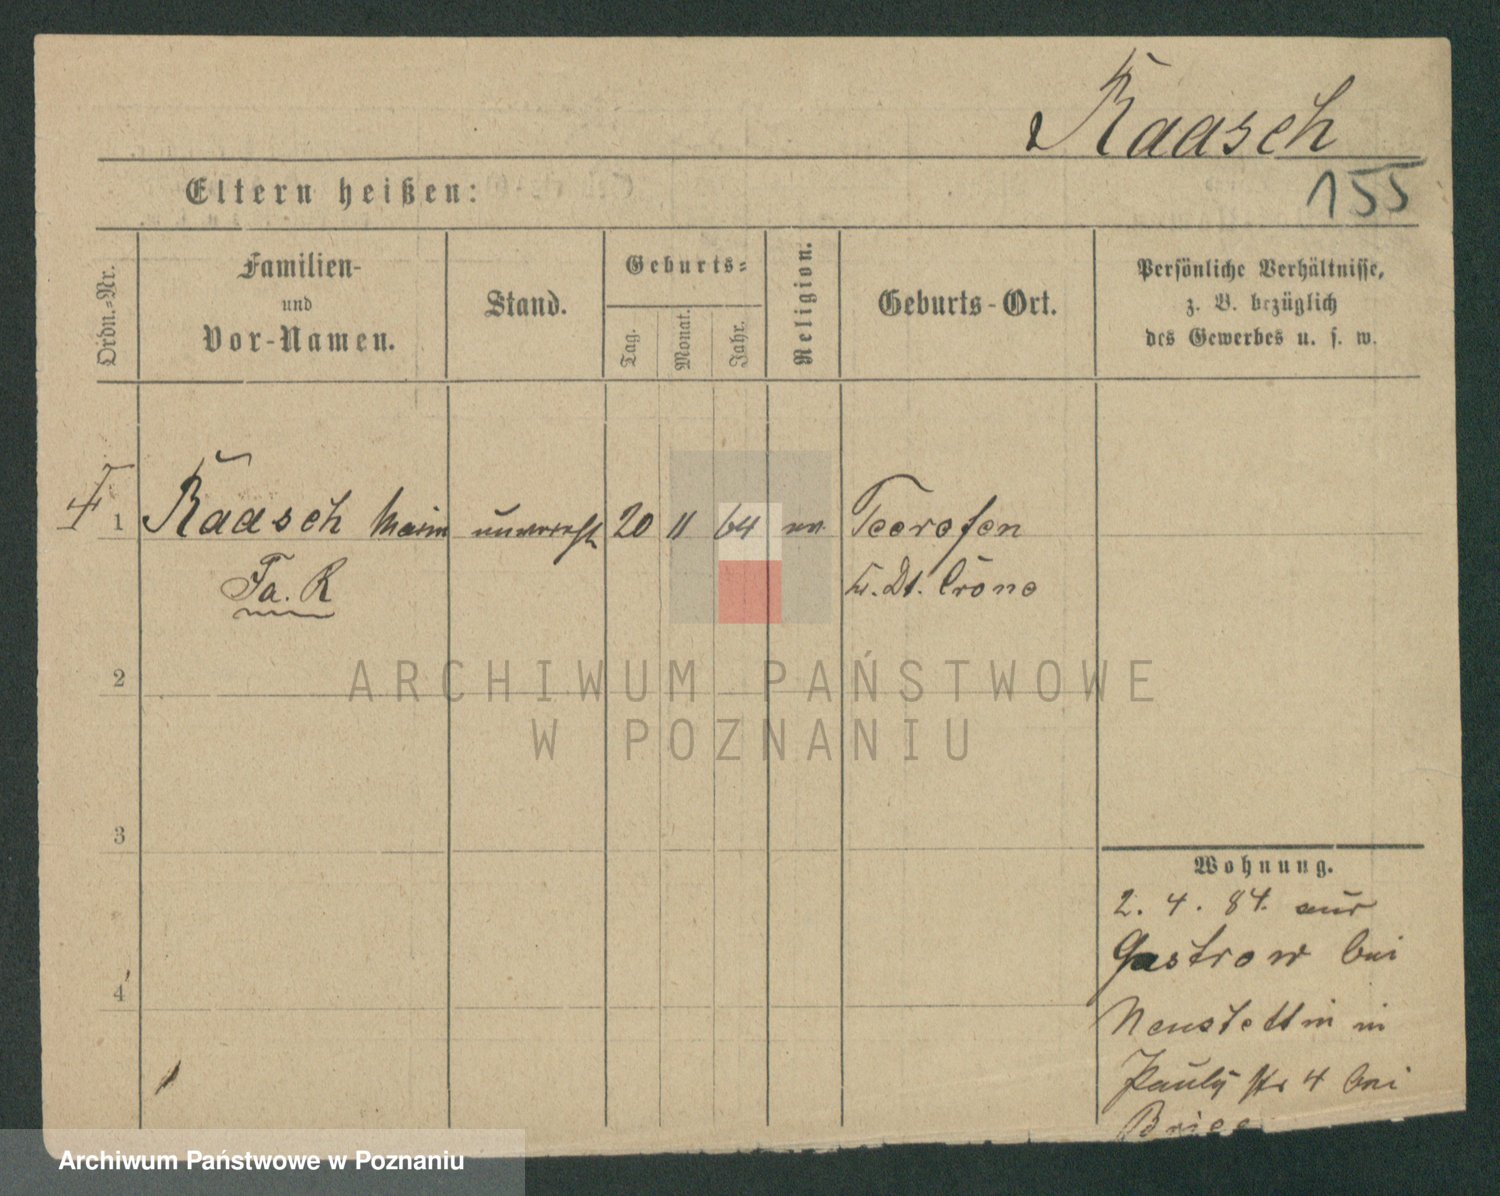 Raasch
155
Eltern heißen:
Ordn.-Nr.
Familien-
und
Vor-Namen.
Stand.
Geburts-
Tag.
Monat.
Jahr.
Religion.
Geburts-Ort.
Persönliche Verhältnisse,
z. B. bezüglich
des Gewerbes u. s. w.
1 Raasch Marie unvereh 20 11 64 ev. Teerofen
Fa. R
Kr. Dt. Crone
2
3
4
Wohnung.
2. 4. 84. aus
Gastrow bei
Neustettin in
Pauly str 4 bei
ARCHIWUM PAŃSTWOWE
W POZNANIU
Archiwum Państwowe w Poznaniu